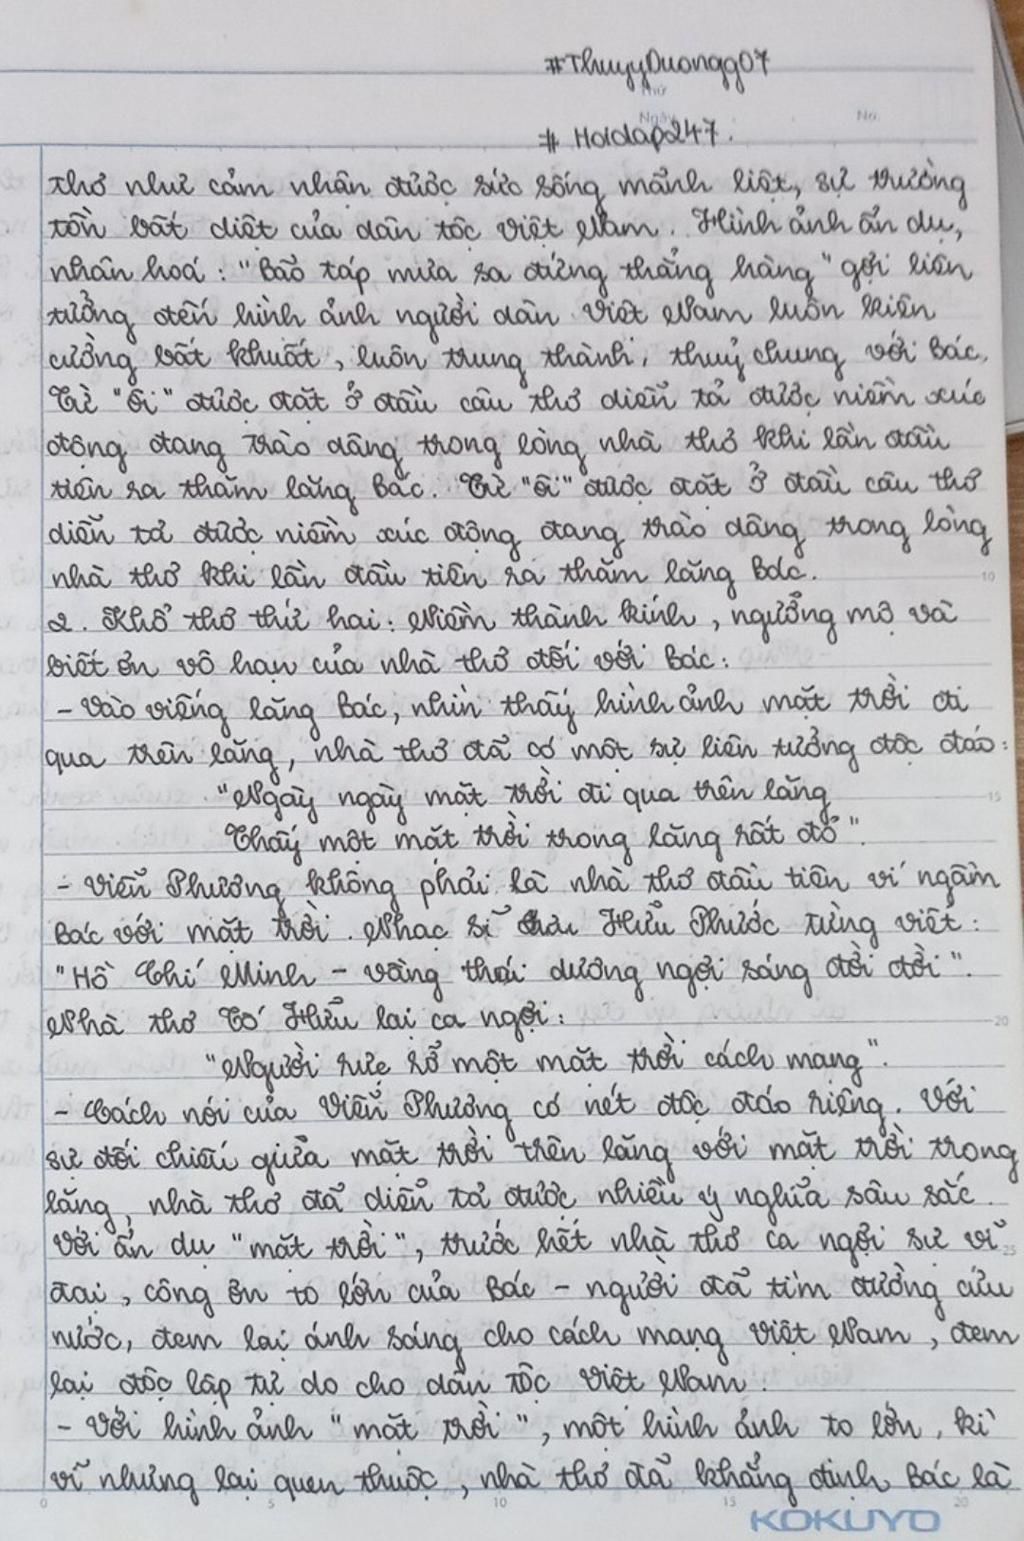 #ThuyyDuongg07
Thứ
Ngày
No.
# Hoidap247.
thơ như cảm nhận được sức sống mãnh liệt, sự trường
tồn bất diệt của dân tộc Việt Nam. Hình ảnh ẩn dụ,
nhân hoá : "Bão táp mưa sa đứng thẳng hàng" gợi liên
tưởng đến hình ảnh người dân Việt Nam luôn kiên
cường bất khuất, luôn trung thành, thuỷ chung với Bác.
Từ "ôi" được đặt ở đầu câu thơ diễn tả được niềm xúc
động đang trào dâng trong lòng nhà thơ khi lần đầu
tiên ra thăm lăng Bác. Từ "ôi" được đặt ở đầu câu thơ
diễn tả được niềm xúc động đang trào dâng trong lòng
nhà thơ khi lần đầu tiên ra thăm lăng Bác.
10
2. Khổ thơ thứ hai : Niềm thành kính, ngưỡng mộ và
biết ơn vô hạn của nhà thơ đối với Bác :
- Vào viếng lăng Bác, nhìn thấy hình ảnh mặt trời đi
qua trên lăng, nhà thơ đã có một sự liên tưởng độc đáo :
"Ngày ngày mặt trời đi qua trên lăng
15
Thấy một mặt trời trong lăng rất đỏ".
- Viễn Phương không phải là nhà thơ đầu tiên ví ngầm
Bác với mặt trời. Nhạc sĩ Lưu Hữu Phước từng viết :
"Hồ Chí Minh - vầng thái dương ngợi sáng đời đời".
Nhà thơ Tố Hữu lại ca ngợi :
20
"Người rực rỡ một mặt trời cách mạng".
- Cách nói của Viễn Phương có nét độc đáo riêng. Với
sự đối chiếu giữa mặt trời trên lăng với mặt trời trong
lăng, nhà thơ đã diễn tả được nhiều ý nghĩa sâu sắc.
Với ẩn dụ "mặt trời", trước hết nhà thơ ca ngợi sự vĩ
25
đại, công ơn to lớn của Bác - người đã tìm đường cứu
nước, đem lại ánh sáng cho cách mạng Việt Nam, đem
lại độc lập tự do cho dân tộc Việt Nam.
- Với hình ảnh "mặt trời", một hình ảnh to lớn, kì
vĩ nhưng lại quen thuộc, nhà thơ đã khẳng định Bác là
0 5 10 15 20
KOKUYO